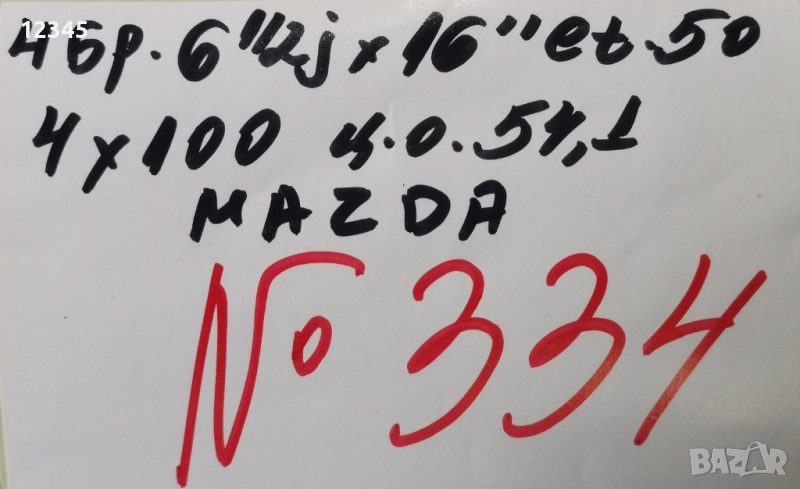 12345
4 бр. 6 1/2j x 16" et.50
4 x 100 ц.о. 54,1
MAZDA
№ 334
BAZAR